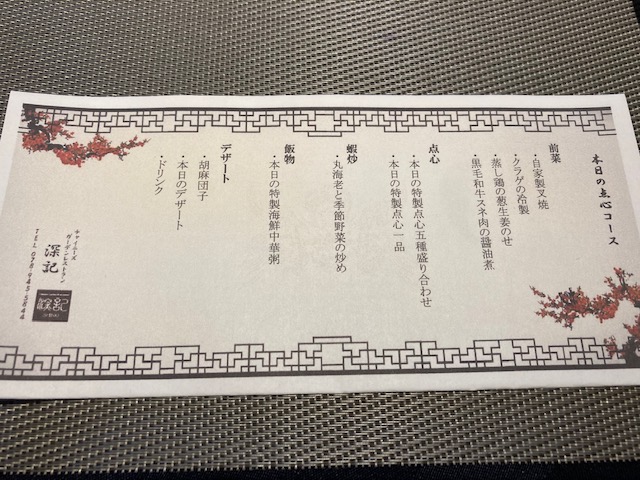 本日の点心コース
前菜
・自家製叉焼
・クラゲの冷製
・蒸し鶏の葱生姜のせ
・黒毛和牛スネ肉の醤油煮
点心
・本日の特製点心五種盛り合わせ
・本日の特製点心一品
蝦炒
・丸海老と季節野菜の炒め
飯物
・本日の特製海鮮中華粥
デザート
・胡麻団子
・本日のデザート
・ドリンク
チャイニーズ
ガーデンレストラン
深記
TEL 078-945-5844